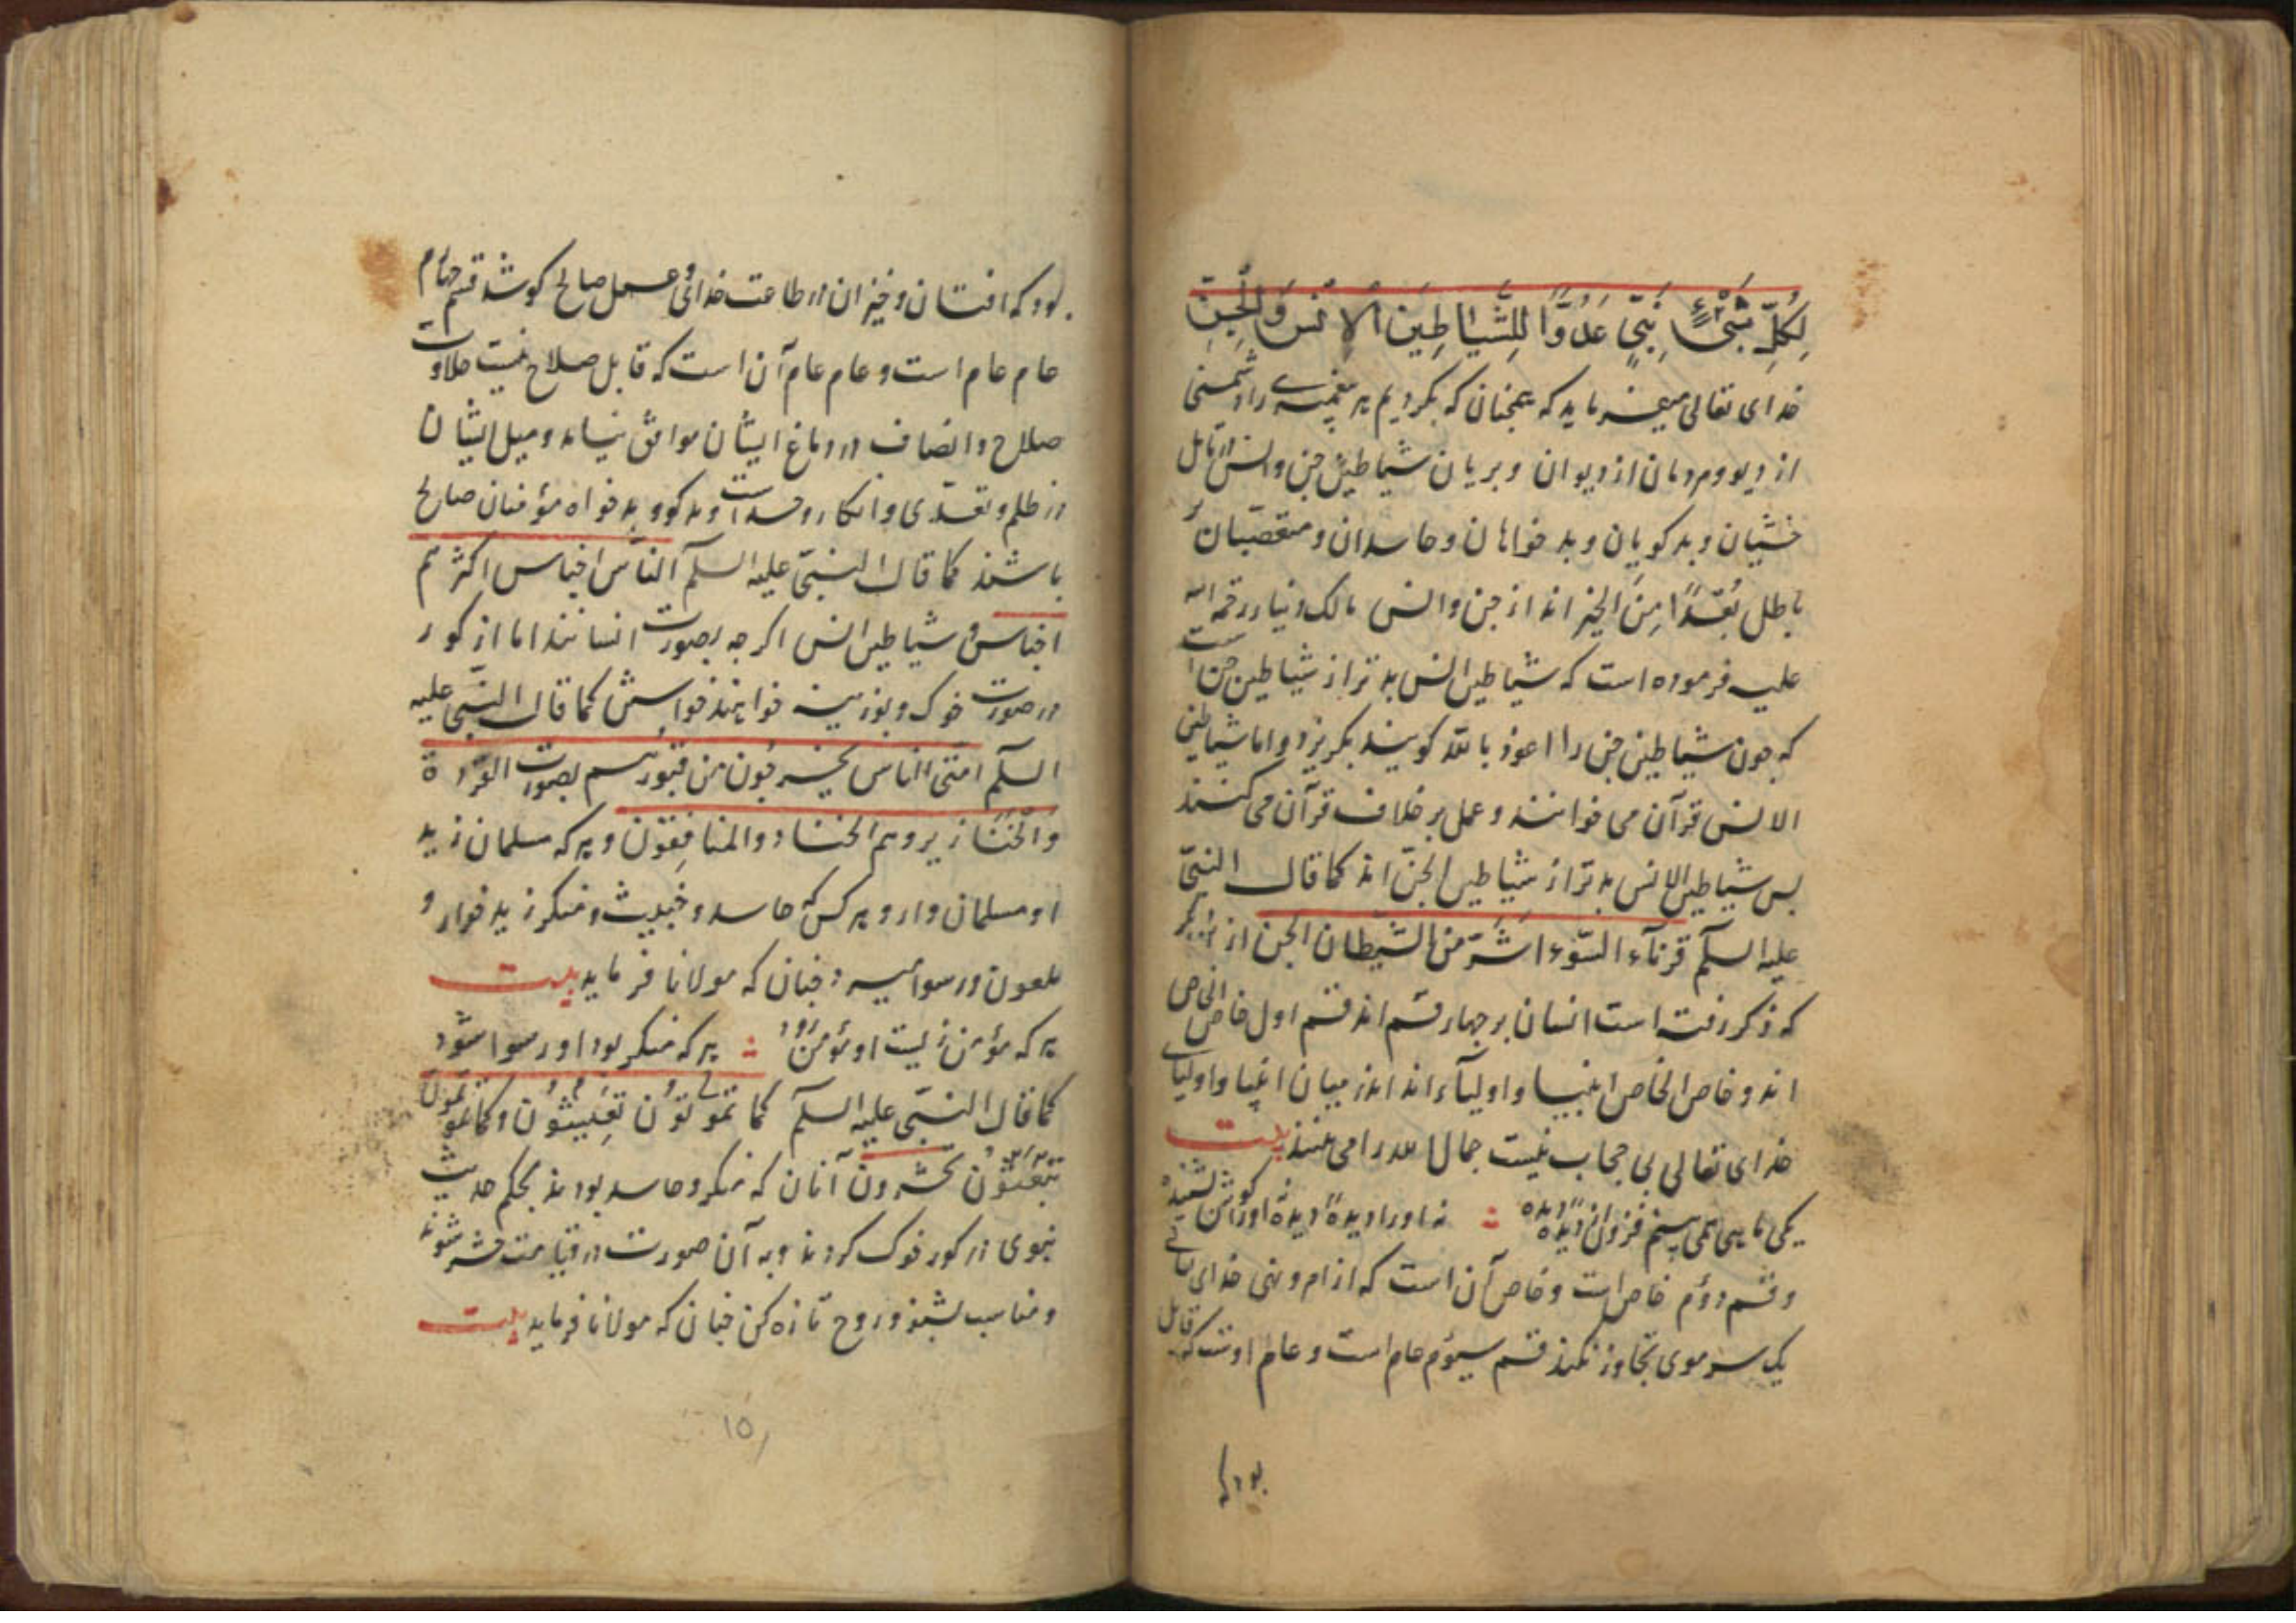 لِكُلِّ شَیْءٍ نَبِیٍّ عَدُوًّا لِلشَّیَاطِینَ الْاِنْسِ وَالْجِنِّ
خدای تعالی میفرماید که همچنان که بکردیم هر پیغمبری را دشمنی
از دیو و مردمان از دیوان و بریان شیاطین جن و انس
خشیان و بدکویان و بدخواهان و حاسدان و متعصبان
باطل بُعْدًا مِنَ الخیر اند از جن و انس مالک دینار رحمة الله
علیه فرموده است که شیاطین انس بدتر از شیاطین جن است
که جون شیاطین جن را اعوذ بالله کویند بکریزد و اما شیاطین
الانس قرآن می خوانند و عمل بر خلاف قرآن می کنند
بس شیاطین الانس بدتر از شیاطین الجن اند کما قال النبی
علیه السلم قرناء السّوء اشَرّ من الشیطان الجن از
که ذکر رفته است انسان بر جهار قسم اند قسم اول خاص الخاص
اند و خاص الخاص انبیا و اولیآء اند اندر میان انبیا و اولیای
خدای تعالی بی حجاب نیست جمال الله را می بینند بیت
یکی ماهی همی بینم فزون از دیده در دیده : نه او را دیدهٔ دیده نه او را کوش بشنیده
و قسم دوّم خاص است و خاص آن است که از امر و نهی خدای تعالی
یک سر موی تجاوز نکند قسم سیوّم عام است و عام اوست که قابل
بود که
بود که افتان و خیزان در طاعت خدائی و عمل صالح کوشد قسم جهارم
عام عام است و عام عام آن است که قابل صلاح نیست حلاوت
صلاح و انصاف در دماغ ایشان موافق نیاید و میل ایشان
در ظلم و تعدّی و انکار و حسد است و بدکو و بدخواه مؤمنان صالح
باشند کما قال النبی علیه السلم الناس اجناس اکثرهم
اجناس و شیاطین انس اکرجه بصورت انسانند اما از کور
در صورت خوک و بوزینه خواهند خواستن کما قال النبی علیه
السلم امتی الناس یخرجون من قبورهم بصورت القردة
والخنازیر و هم الحساد و المنافقون و هر که مسلمان زید
او مسلمان رود و هر کس که حاسد و خبیث و منکر زید خوار و
ملعون و رسوا میرد جنان که مولانا فرماید بیت
هر که مؤمن زیست او مؤمن رود : هر که منکر بود او رسوا شود
کما قال النبی علیه السلم کما تموتون تعیشون و کما تموتون
تبعثون تحشرون آنان که منکر و حاسد بودند بحکم حدیث
نبوی در کور خوک کردند و به آن صورت در قیامت حشر شوند
و مناسب بشنو و روح تازه کن جنان که مولانا فرماید بیت
١٥